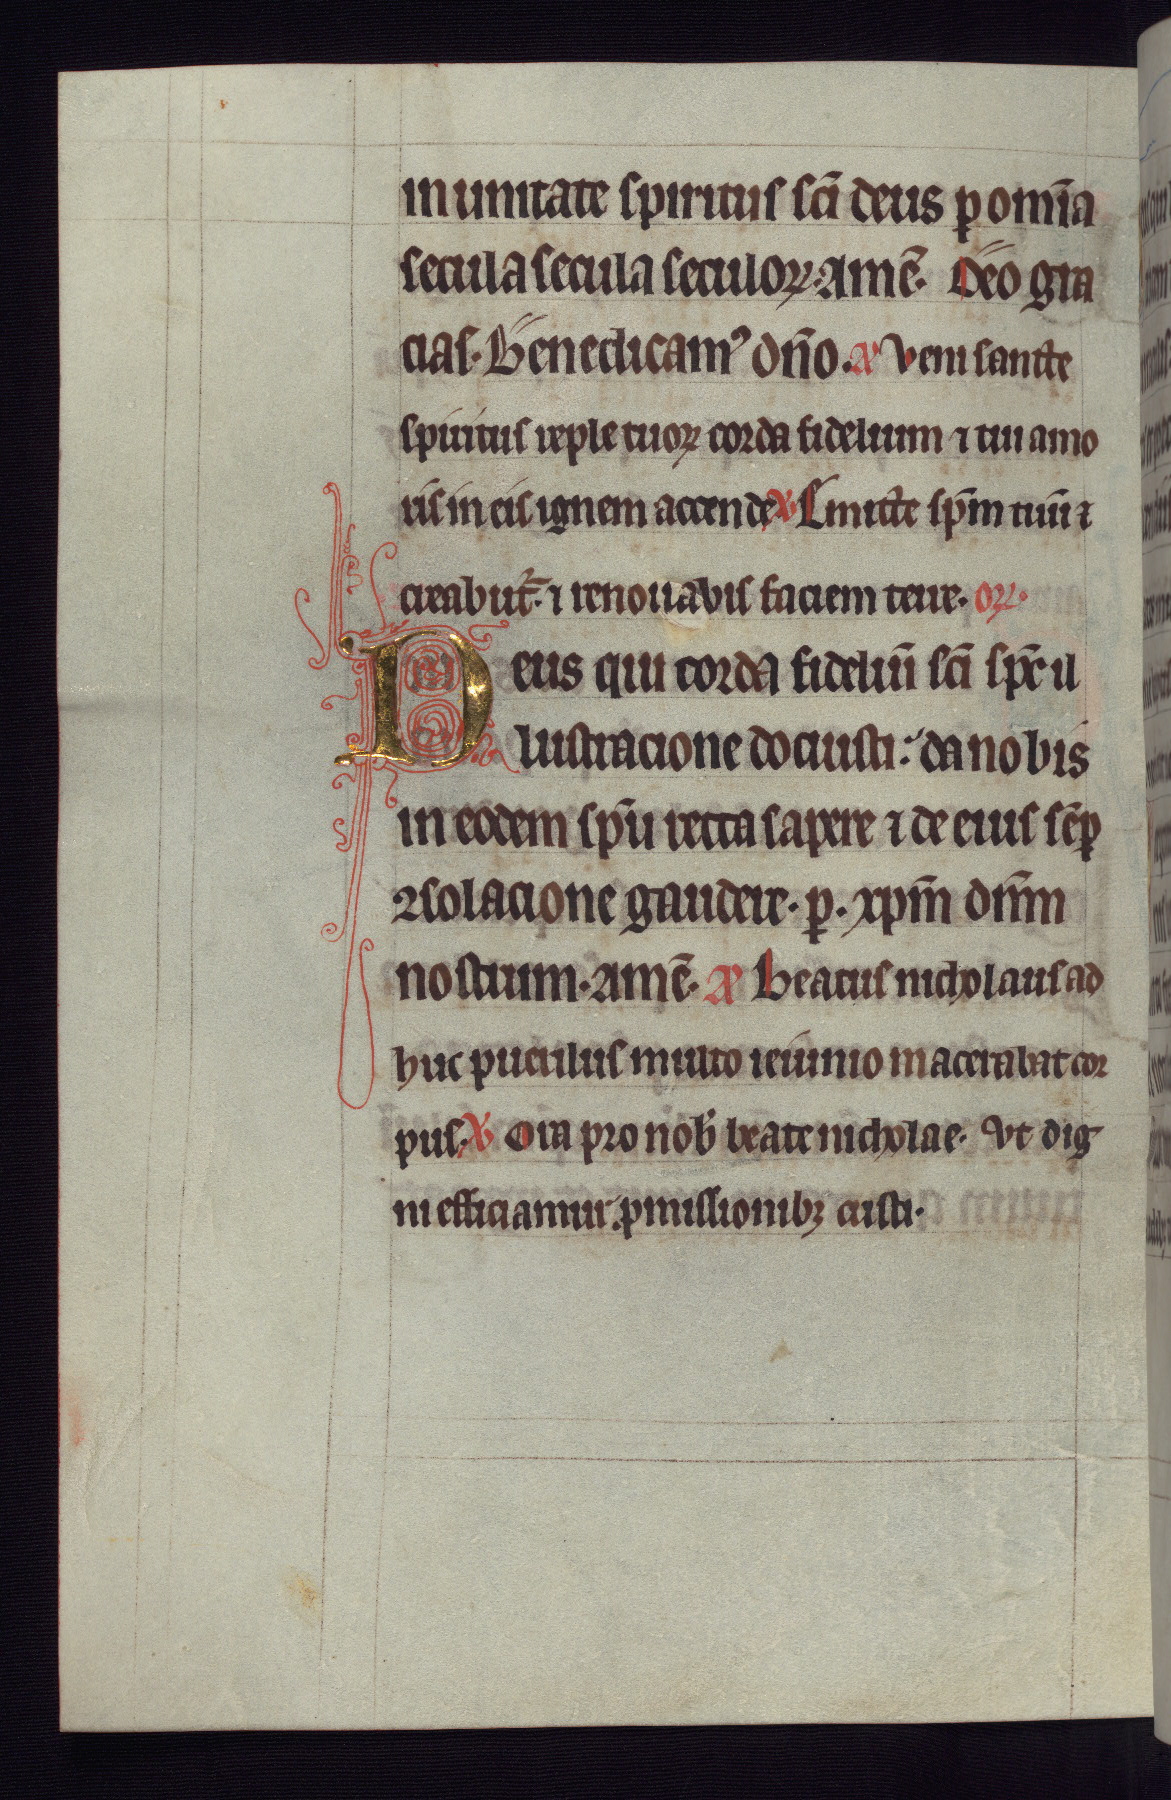 in unitate spiritus sc̄i deus ꝑ omīa
secula secula seculoꝝ. amē. Deo gra
cias. Benedicamꝰ dn̄o. aꝰ Veni sancte
spiritus reple tuoꝝ corda fidelium ⁊ tui amo
ris in eis ignem accende. ꝟ Emitte sp̄m tuū ⁊
creabūt̄. ⁊ renouabis faciem terre. oꝝ.
Deus qui corda fideliū sc̄i sp̄c il
lustracione docuisti: da nobis
in eodem sp̄u recta sapere ⁊ de eius sēꝑ
ꝯsolacione gaudere. ꝑ. xp̄m dn̄m
nostrum. amē. aꝰ Beatus nicholaus ad
huc puerulus multo ieiunio macerabat cor
pus. ꝟ Ora pro nob̄ beate nicholae. Vt dig
ni efficiamur ꝓmissionibꝫ cristi.